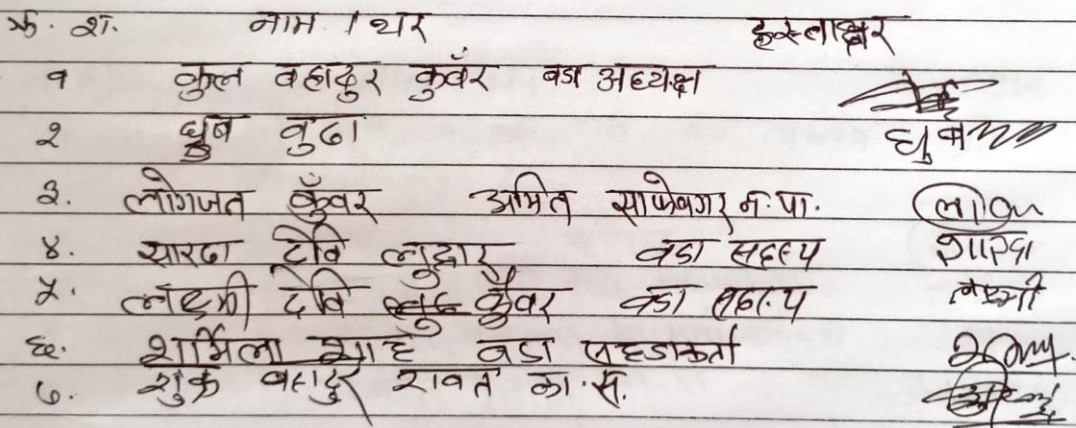 क्र. श. नाम । थर हस्ताक्षर
१ कुल बहादुर कुवँर वडा अध्यक्ष
२ ध्रुब वुढा ध्रुब
३. लोगजत कुँवर अमित साफेवगर न.पा.
४. सारदा देवि लुहार वडा सदस्य शारदा
५. लक्ष्मी देवि कुँवर वडा सदस्य लक्ष्मी
६. शर्मिला शाह वडा
७. शुक्र बहादुर रावत का.स.